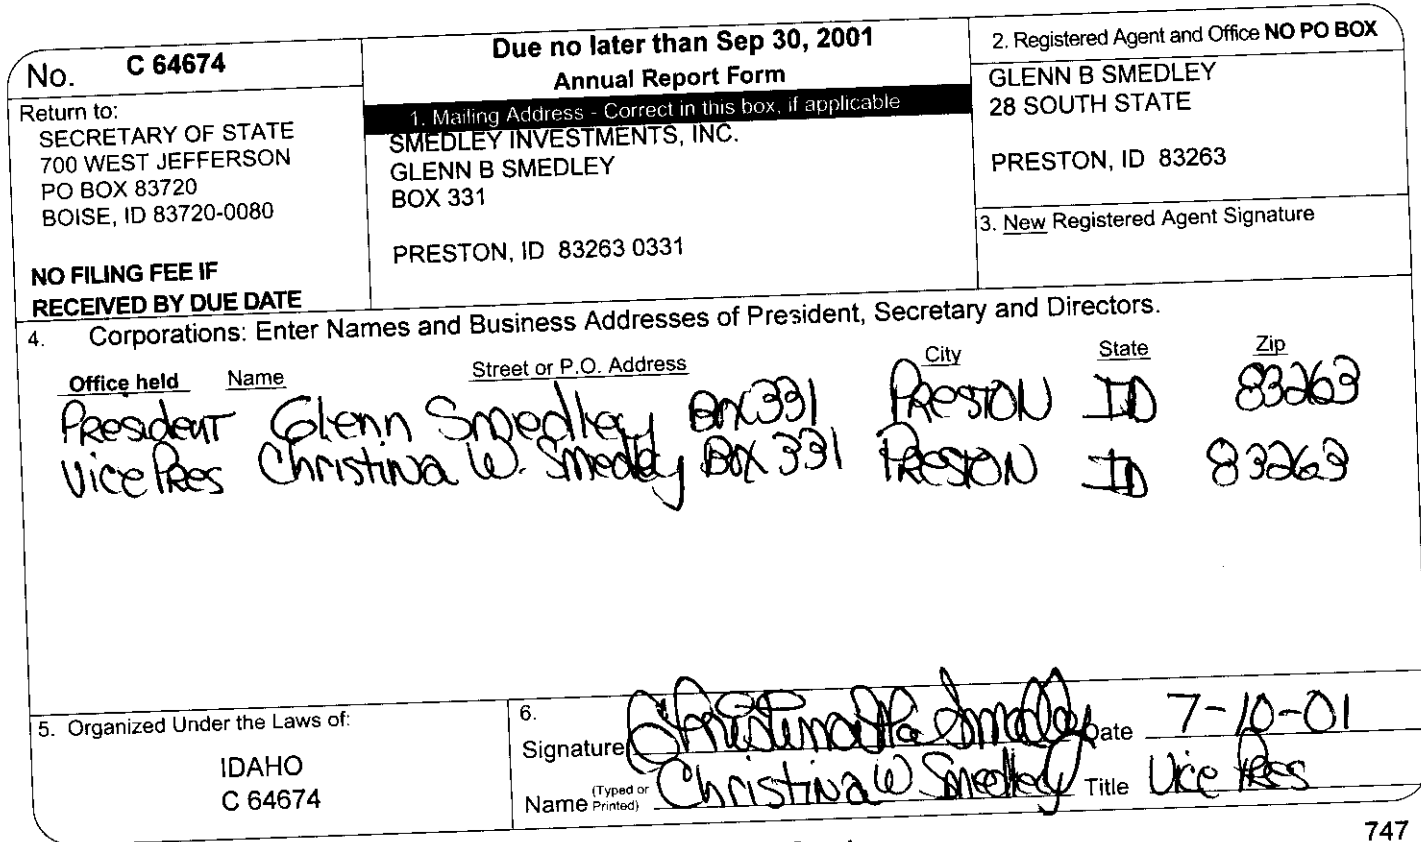 No. C 64674
Return to:
SECRETARY OF STATE
700 WEST JEFFERSON
PO BOX 83720
BOISE, ID 83720-0080
NO FILING FEE IF
RECEIVED BY DUE DATE
Due no later than Sep 30, 2001
Annual Report Form
1. Mailing Address - Correct in this box, if applicable
SMEDLEY INVESTMENTS, INC.
GLENN B SMEDLEY
BOX 331
PRESTON, ID 83263 0331
2. Registered Agent and Office NO PO BOX
GLENN B SMEDLEY
28 SOUTH STATE
PRESTON, ID 83263
3. New Registered Agent Signature
4. Corporations: Enter Names and Business Addresses of President, Secretary and Directors.
Office held Name Street or P.O. Address City State Zip
President Glenn Smedley Box 331 Preston ID 83263
Vice Pres Christina W. Smedley Box 331 Preston ID 83263
5. Organized Under the Laws of:
IDAHO
C 64674
6.
Signature Christina W Smedley Date 7-10-01
Name (Typed or Printed) Christina W Smedley Title Vice Pres
747